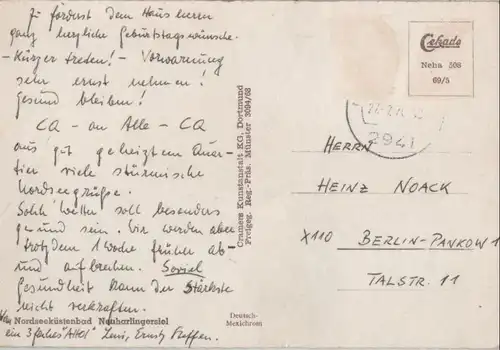 Zu förderst dem Hausherrn
ganz herzliche Geburtstagswünsche.
- Kürzer treten! - Vorwarnung
sehr ernst nehmen!
Gesund bleiben!
CQ - an Alle - CQ
aus gut geheiztem Quar-
tier viele stürmische
Nordseegrüße.
Solch Wetter soll besonders
gesund sein. Wir werden aber
trotzdem 1 Woche früher ab-
und aufbrechen. Soviel
Gesundheit kann der Stärkste
nicht verkraften.
Nordseeküstenbad Neuharlingersiel
ein 3faches "Ahoi" Ernst,
Cramers Kunstanstalt KG, Dortmund
Freigeg. Reg.-Präs. Münster 3094/68
Deutsch-
Mexichrom
Cekade
Neha 508
69/5
2941
HERRN
HEINZ NOACK
X110 BERLIN-PANKOW 1
TALSTR. 11